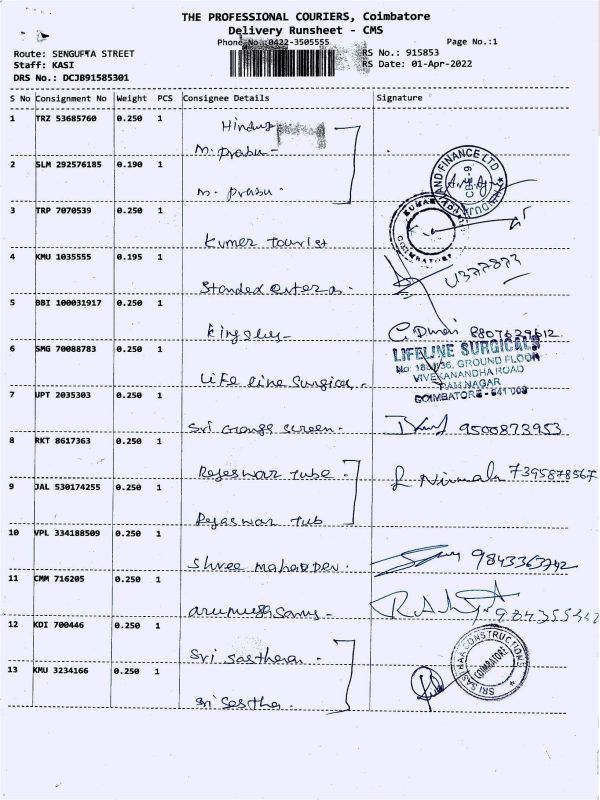 THE PROFESSIONAL COURIERS, Coimbatore
Delivery Runsheet - CMS
Phone No.:0422-3505555 Page No.:1
Route: SENGUPTA STREET RS No.: 915853
Staff: KASI RS Date: 01-Apr-2022
DRS No.: DCJB91585301
S No Consignment No Weight PCS Consignee Details Signature
1 TRZ 53685760 0.250 1 Hinduja
M. Prabu -
2 SLM 292576185 0.190 1 M. Prabu -
AND FINANCE LTD
CBE-9
3 TRP 7070539 0.250 1 Kumer tourist
COIMBATORE
4 KMU 1035555 0.195 1 Standex
5 BBI 100031917 0.250 1 Kingsley - 8807629612
6 SMG 70088783 0.250 1 Life line Surgical -
LIFELINE SURGICALS
GROUND FLOOR
VIVEKANANDHA ROAD
RAM NAGAR
COIMBATORE - 641 009
7 UPT 2035303 0.250 1 Sri orange screen - 9500873953
8 RKT 8617363 0.250 1 Rajeswar tube - Nirmala 7395878567
9 JAL 530174255 0.250 1 Rajaswar tub
10 VPL 334188509 0.250 1 Shree Mahadev - 9843363742
11 CMM 716205 0.250 1 arumughsamy -
12 KDI 700446 0.250 1 Sri sasthaa -
13 KMU 3234166 0.250 1 Sri Sastha -
SRI SASTHAA CONSTRUCTIONS
COIMBATORE